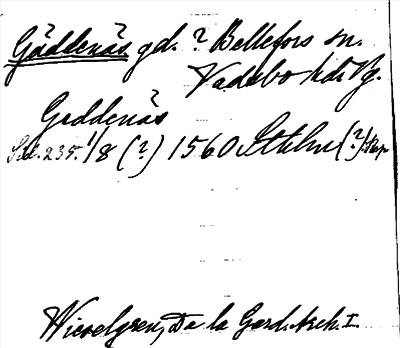 Gäddenäs gd. ? Bellefors sn.
Vadsbo hd. Vg.
Geddenäs
Sid. 235. 1/8 (?) 1560 Sthlm (?) Pap.
Wieselgren, De la Gard. Arch. I.